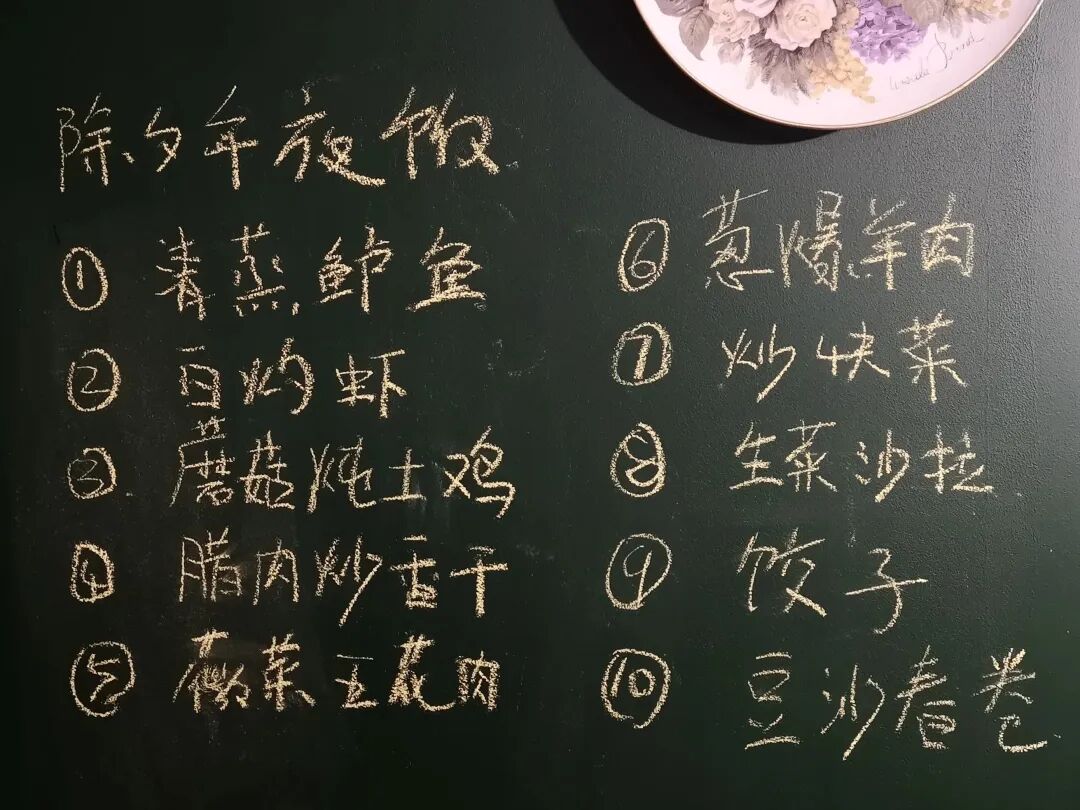 除夕年夜饭
① 清蒸鲈鱼
② 白灼虾
③ 蘑菇炖土鸡
④ 腊肉炒香干
⑤ 蕨菜五花肉
⑥ 葱爆羊肉
⑦ 炒快菜
⑧ 生菜沙拉
⑨ 饺子
⑩ 豆沙春卷